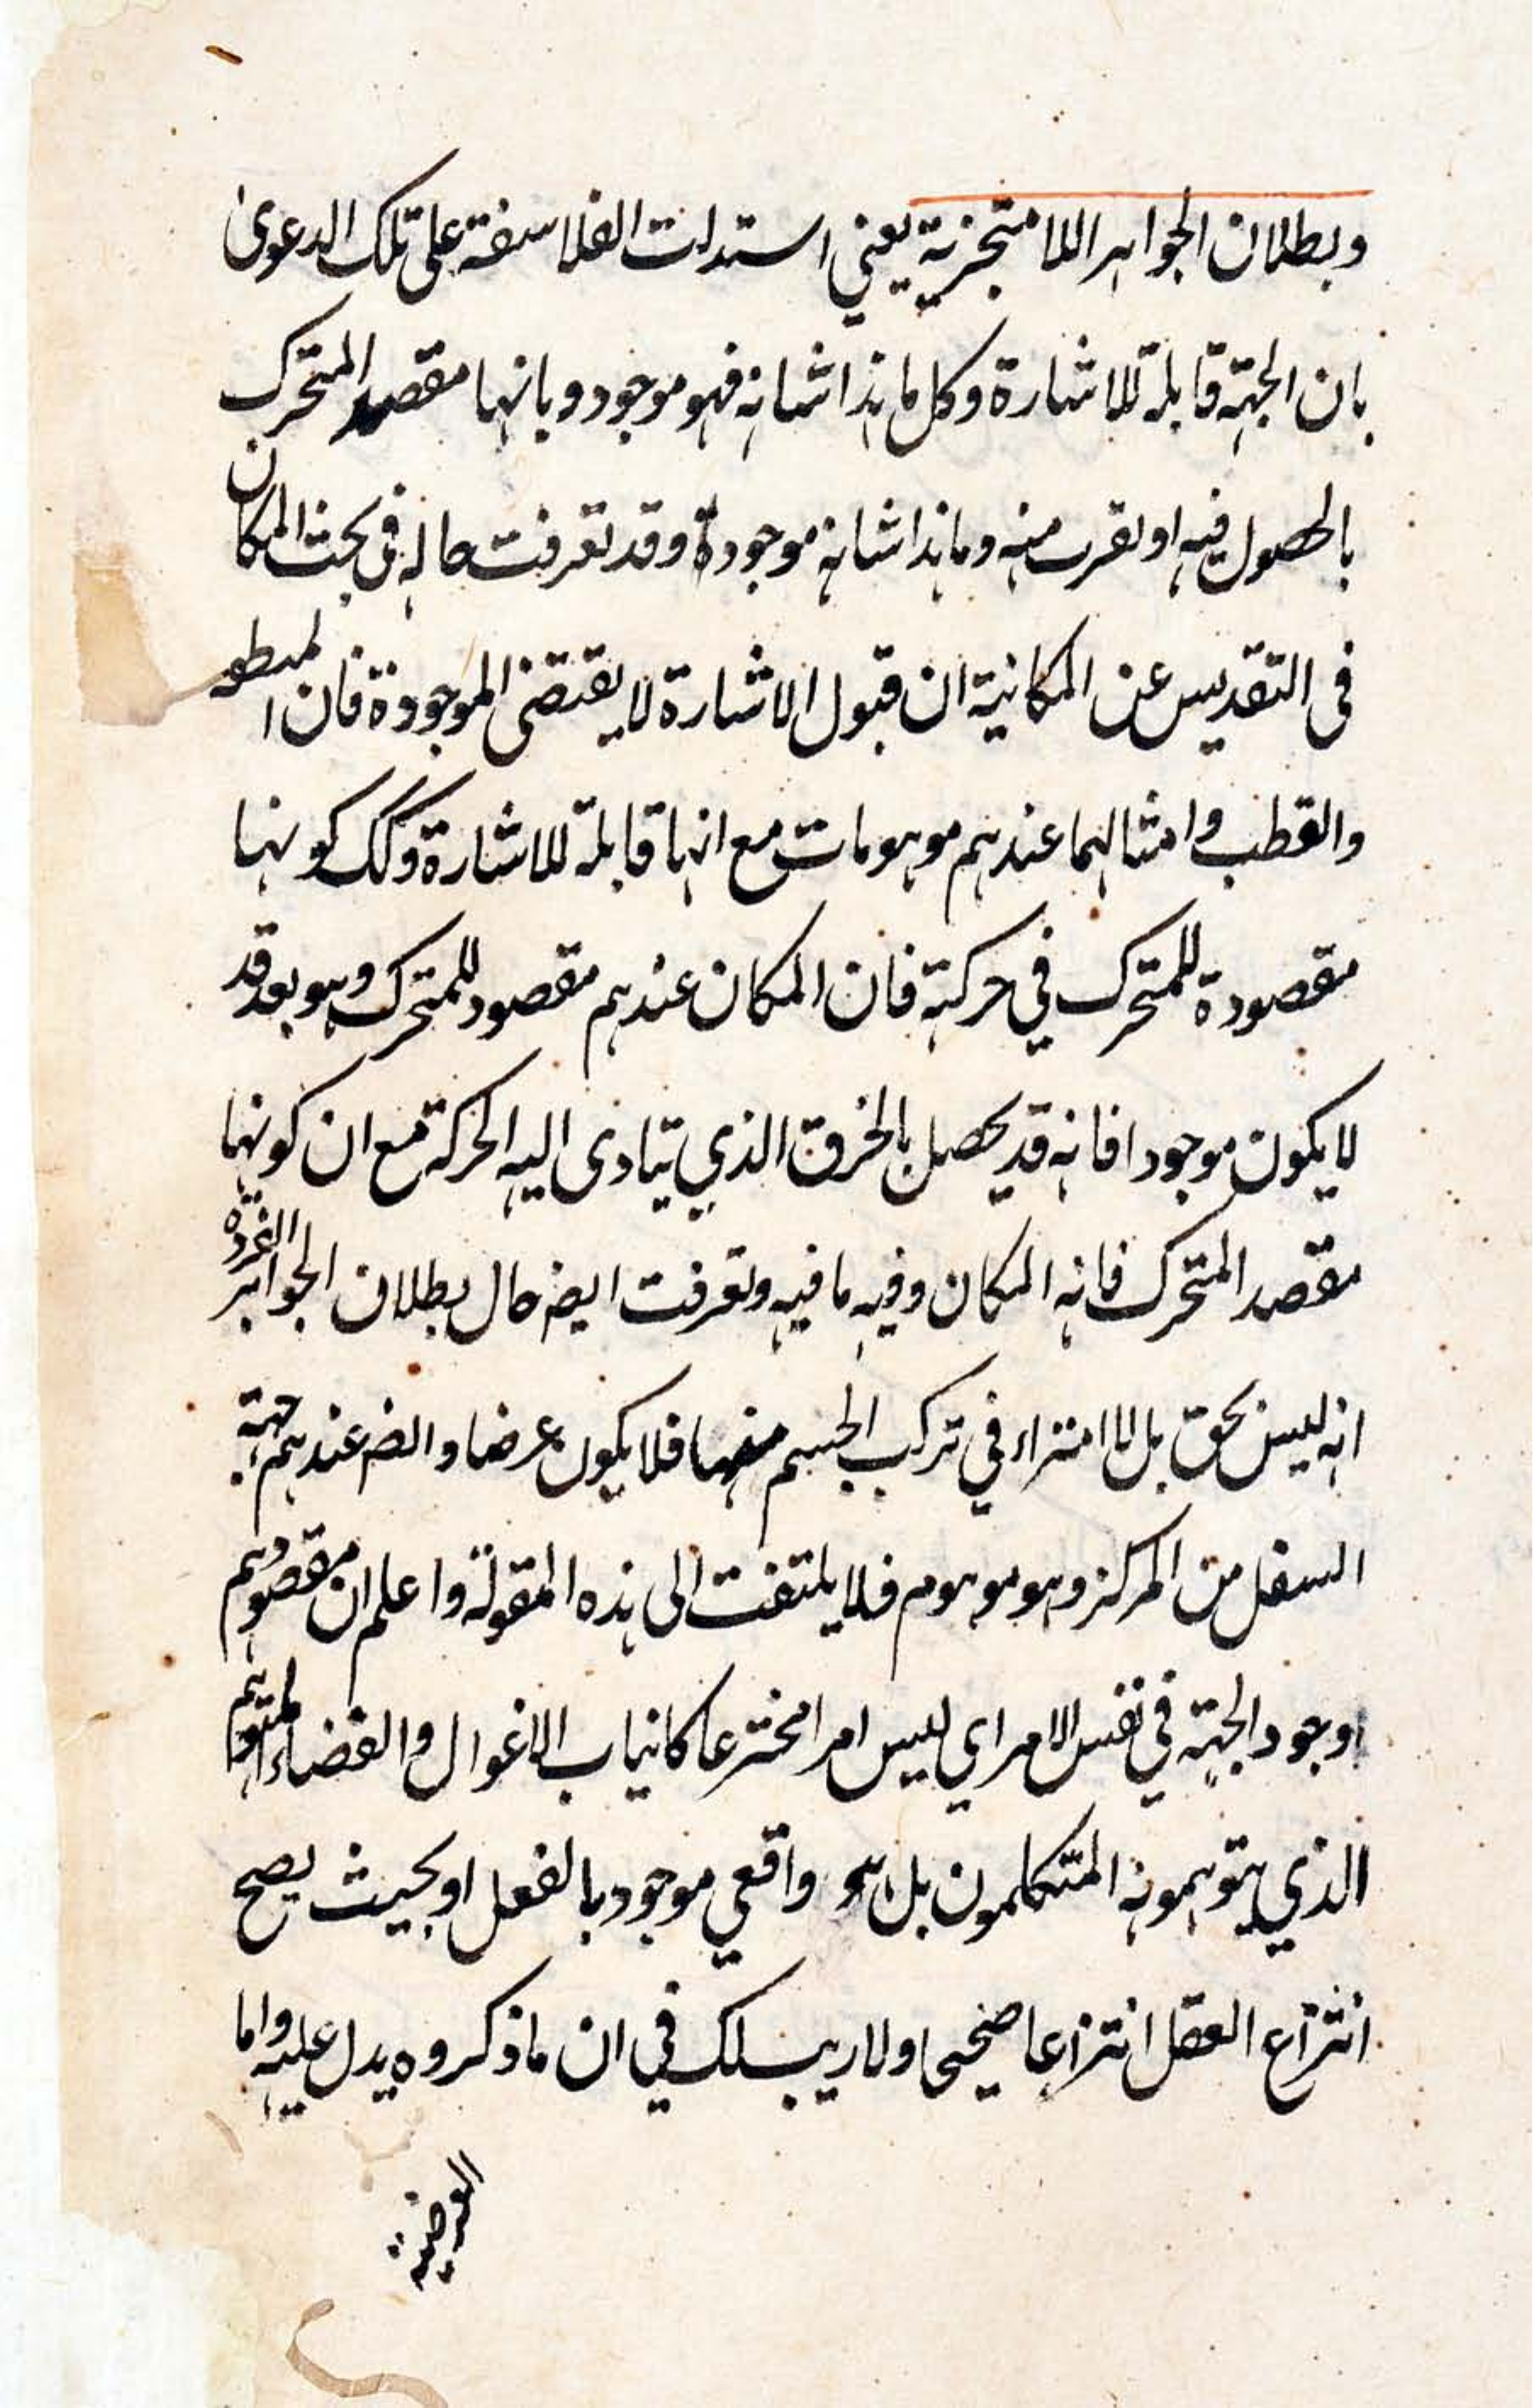 وبطلان الجواهر اللامتجزية يعني استدلت الفلاسفة على تلك الدعوى
بان الجهة قابلة للاشارة وكل ما هذا شانه فهو موجود وبانها مقصد المتحرك
بالحصول فيه او لقرب منه وما هذا شانه موجودة وقد تعرفت حاله في بحث المكان
في التقديس عن المكانية ان قبول الاشارة لا يقتضى الموجودة فان
والقطب وامثالهما عندهم موهومات مع انها قابلة للاشارة وكك كونها
مقصودة للمتحرك في حركته فان المكان عندهم مقصود للمتحرك وهو بعد قد
لا يكون موجودا فانه قد يحصل بالخرق الذي يتادى اليه الحركة مع ان كونها
مقصد المتحرك فانه المكان وفيه ما فيه وتعرفت ايضه حال بطلان الجواهر الفردة
انه ليس بحق بل لا امتراء في تركب الجسم منها فلا يكون عرضا والضه عندهم جهة
السفل من المركز وهو موهوم فلا يلتفت الى هذه المقولة واعلم ان مقصودهم
وجود الجهة في نفس الامر اي ليس امرا مخترعا كانياب الاغوال والفضاء المتوهم
الذي يتوهمونه المتكلمون بل هو واقعي موجود بالفعل او بحيث يصح
انتزاع العقل انتزاعا صحيحا ولا ريب لك في ان ما ذكروه يدل عليه واما